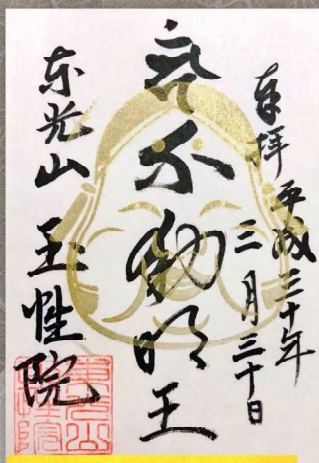 奉拝 平成三十年
三月三十日
不動明王
東光山 玉性院